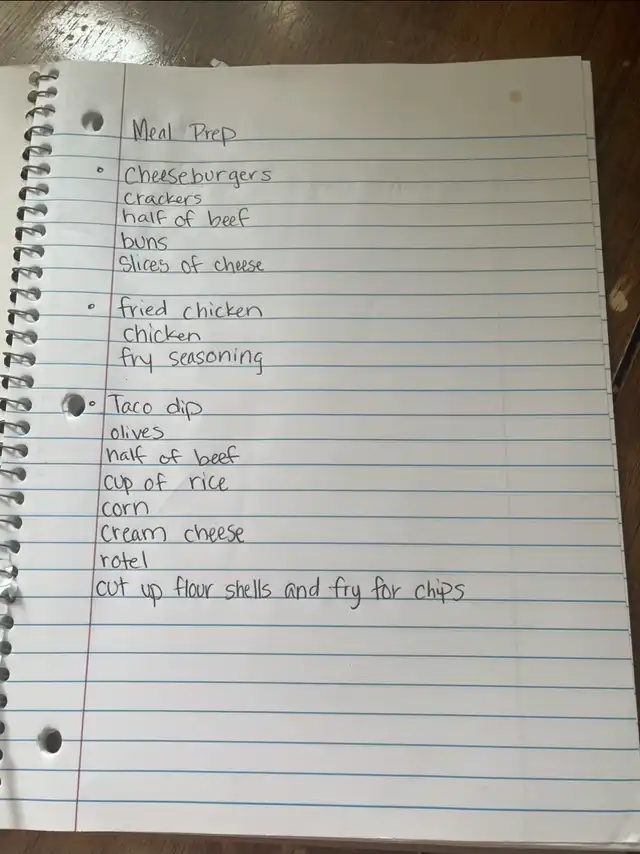 Meal Prep
Cheeseburgers
crackers
half of beef
buns
Slices of cheese
fried chicken
chicken
fry seasoning
Taco dip
olives
half of beef
cup of rice
corn
cream cheese
rotel
cut up flour shells and fry for chips